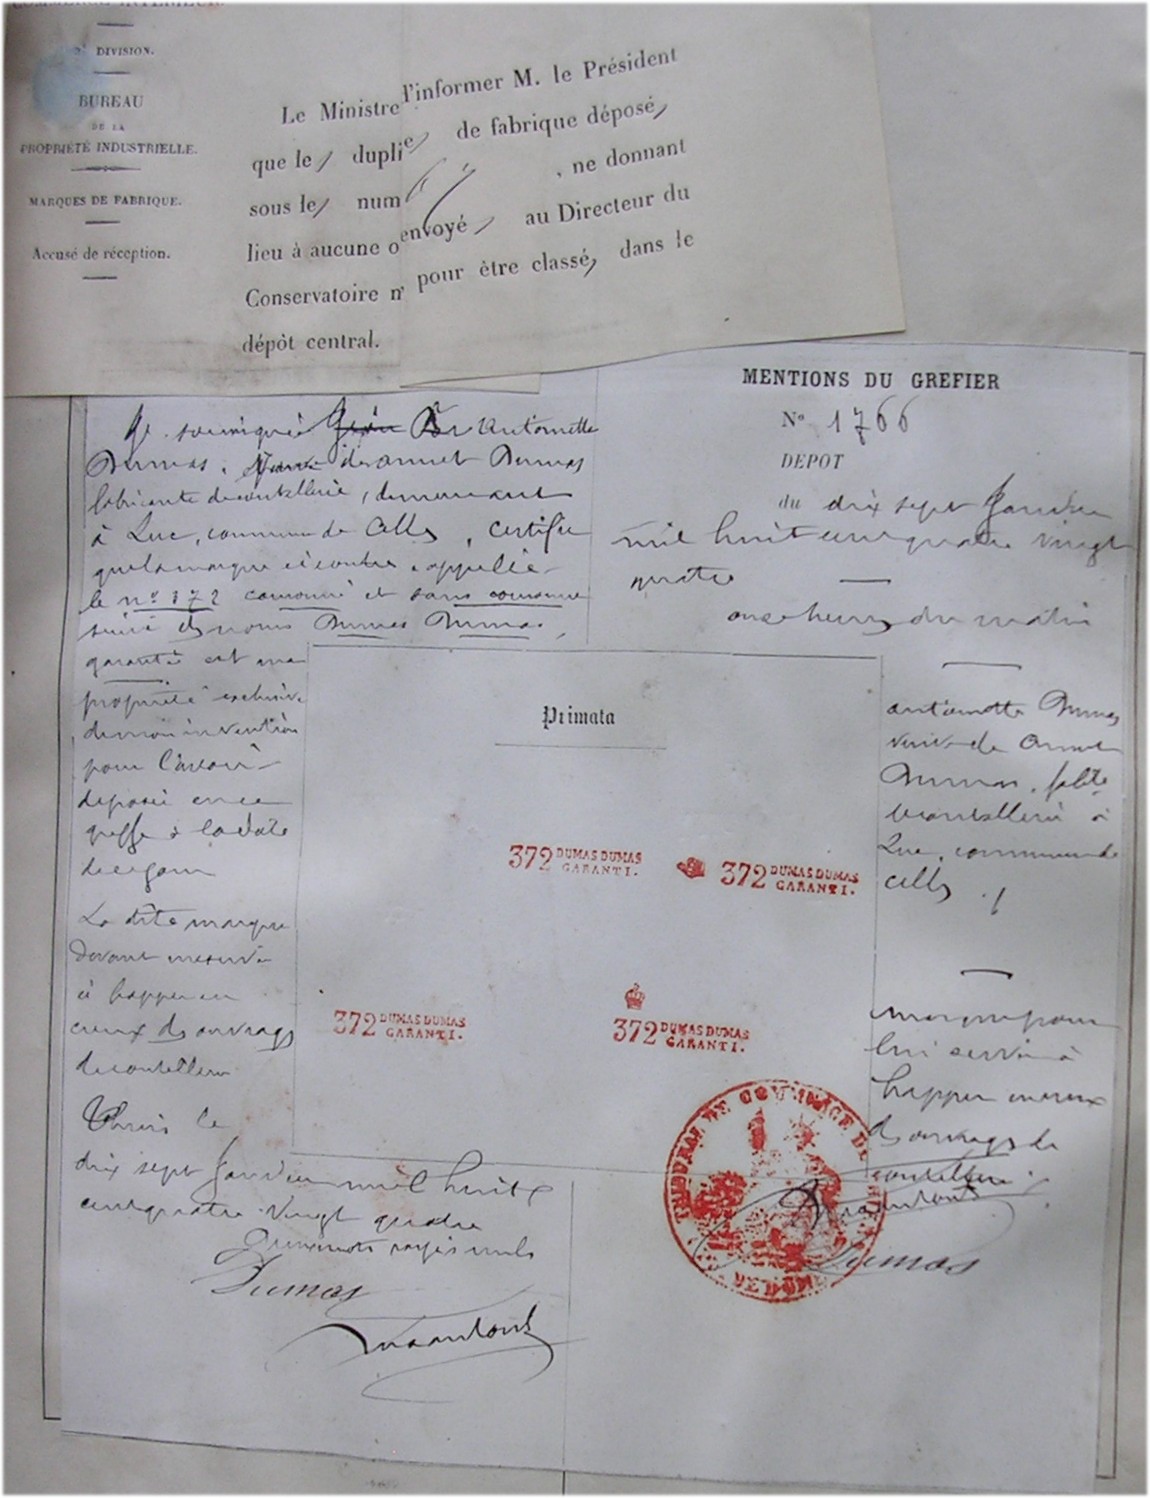 COMMERCE INTÉRIEUR.
DIVISION.
BUREAU
DE LA
PROPRIÉTÉ INDUSTRIELLE.
MARQUES DE FABRIQUE.
Accusé de réception.
Le Ministre l'informer M. le Président
que le dupli de fabrique déposé,
sous le num , ne donnant
lieu à aucune o envoyé au Directeur du
Conservatoire n pour être classé, dans le
dépôt central.
Je soussignée Antoinette
Dumas, Veuve de Annet Dumas
fabricante de coutellerie, demeurant
à Luc, commune de Celles, certifie
que la marque ci contre appelée
le no 372 couronné et sans couronne
suivi des noms Dumas Dumas,
garanti est ma
propriété exclusive
de mon invention
pour l'avoir
déposée en ce
greffe à la date
de ce jour
La dite marque
devant me servir
à frapper en
creux des ouvrages
de coutellerie
Thiers le
dix sept Janvier mil huit
cent quatre vingt quatre
Deux mots rayés nuls
Dumas
MENTIONS DU GREFIER
No 1766
DEPOT
du dix sept Janvier
mil huit cent quatre vingt
quatre
onze heures du matin
Antoinette Dumas
veuve de Annet
Dumas, fabte
de coutellerie à
Luc, commune de
Celles
marque pour
lui servir à
frapper en creux
des ouvrages de
coutellerie
Dumas
Primata
372 DUMAS DUMAS
GARANTI.
372 DUMAS DUMAS
GARANTI.
372 DUMAS DUMAS
GARANTI.
372 DUMAS DUMAS
GARANTI.
TRIBUNAL DE COMMERCE DE
DE DÔME